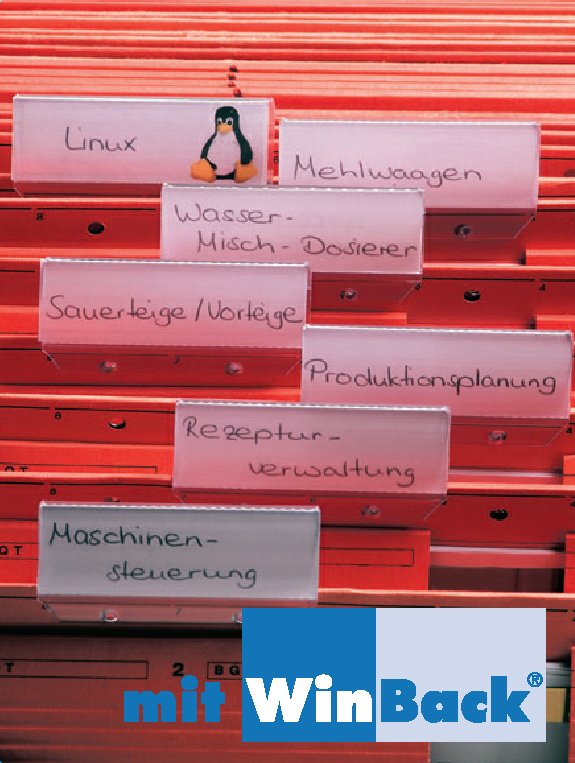 Linux
Mehlwaagen
Wasser-
Misch-Dosierer
Sauerteige/Vorteige
Produktionsplanung
Rezeptur-
verwaltung
Maschinen-
steuerung
mit WinBack®